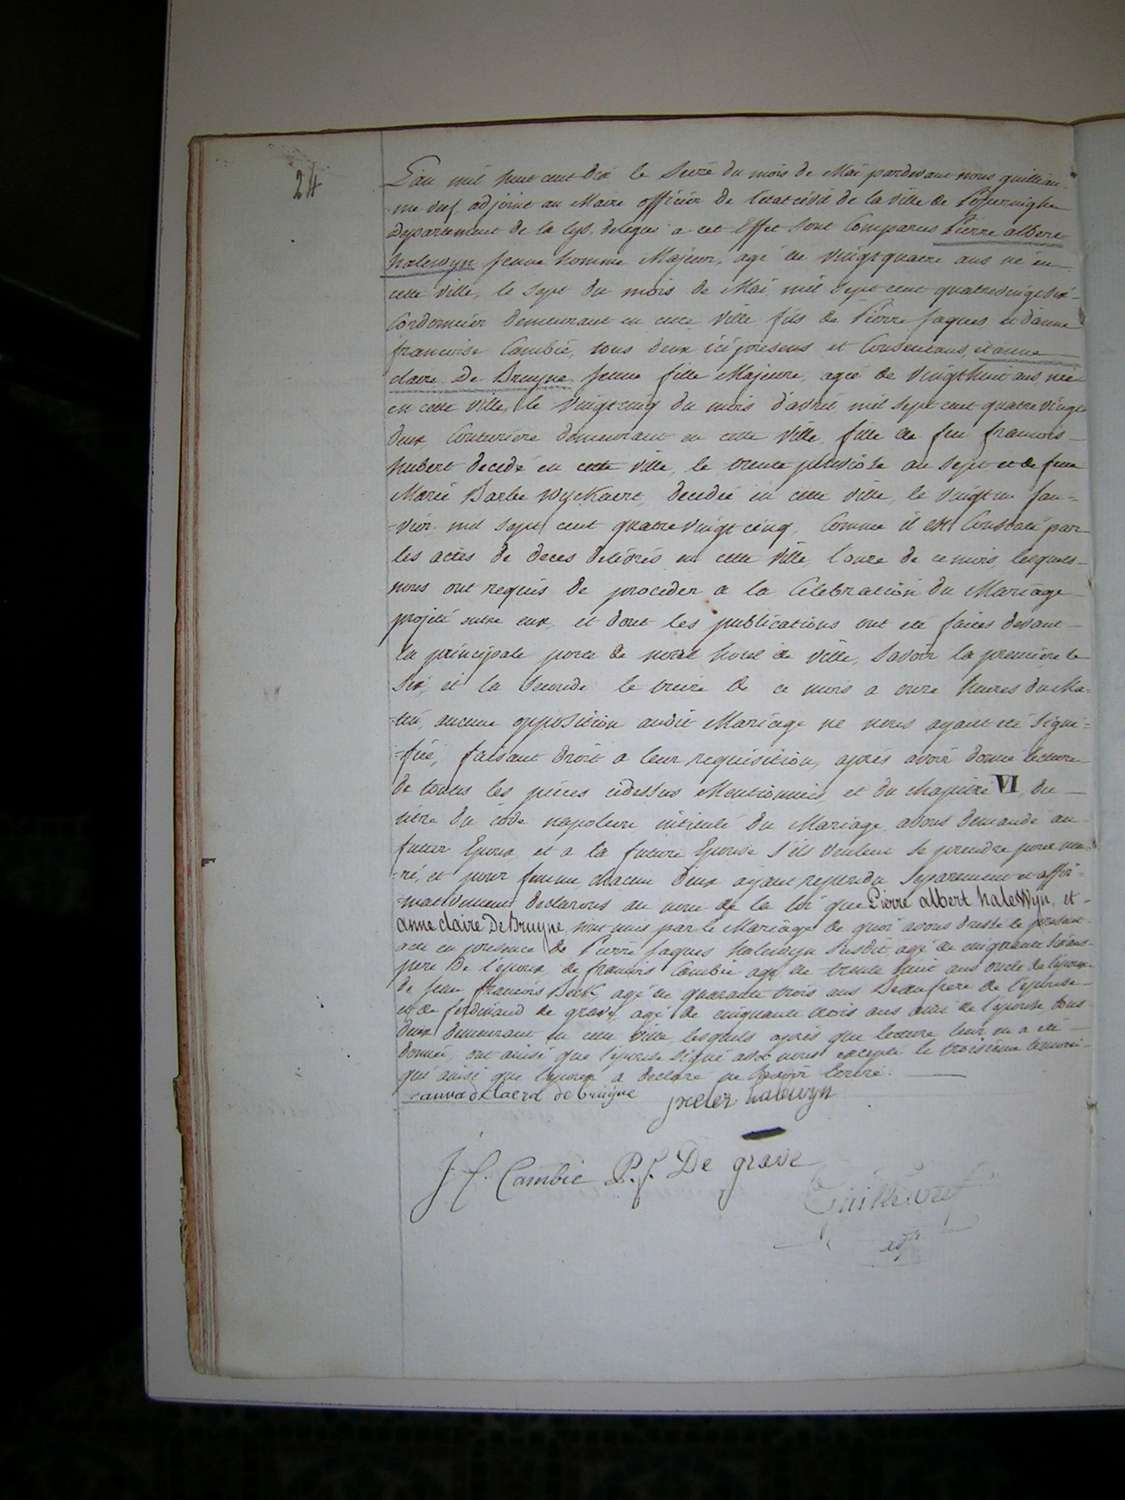 24
L'an mil huit cent dix le seize du mois de Mai pardevant nous guilliau-
-me vuf adjoint au Maire officier de l'état civil de la ville de Poperinghe
Departement de la Lys, delegué a cet Effet sont Comparus Pierre albert
halewyn jeune homme Majeur, agé de vingtquatre ans né en
cette ville, le sept du mois de Mai mil sept cent quatrevingt six
Cordonnier demeurant en cette ville fils de Pierre jaques et d'anne
francoise Cambie, tous deux ici présens et Consentans, et anne
claire De Bruyne jeune fille Majeure, agée de vingthuit ans née
en cette ville, le vingtcinq du mois d'avril mil sept cent quatre vingt
deux Couturière demeurant en cette ville, fille de feu francois
hubert decedé en cette ville, le trente pluviose an sept et de feue
Marie Barbe Wyckaert, decedée en cette ville, le vingt un jan-
-vier mil sept cent quatrevingt cinq, Comme il est Constaté par
les actes de deces delivrés en cette ville l'onze de ce mois, lesquels
nous ont requis de proceder a la Célébration du Mariage
projetté entre eux, et dont les publications ont été faites devant
la principale porte de notre hotel de ville, savoir la première le
six, et la seconde le treize de ce mois a onze heures du Ma-
-tin, aucune opposition audit Mariage ne nous ayant été signi-
-fiée, faisant droit a leur requisition, après avoir donné lecture
de toutes les pièces cidessus Mentionnées, et du chapitre VI, du
titre du code napoleon intitulé du Mariage avons demandé au
futur Epoux, et a la future Epouse s'ils veulent se prendre pour ma-
-ri, et pour femme, chacun d'eux ayant repondu separement et affir-
-mativement declarons au nom de la loi que Pierre albert haleWyn, et
anne claire De Bruyne, sont unis par le Mariage de quoi avons dressé le present
acte en presence de Pierre Jaques halewyn susdit agé de cinquante six ans
père de l'epoux, de francois Cambie agé de trente huit ans oncle de l'epoux
de jean francois Beck agé de quarante trois ans Beaufrere de l'épouse
et de ferdinand de grave agé de cinquante trois ans ami de l'épouse, tous
deux demeurant en cette ville lesquels après que lecture leur en a été
donnée, ont ainsi que l'épouse signé avec nous excepté le troisième temoin
qui ainsi que l'epoux a declaré ne savoir Ecrire.
anna claera de bruijne pieter halewyn
J. f. Cambie P. f. De grave
Guill: vuf
adjt